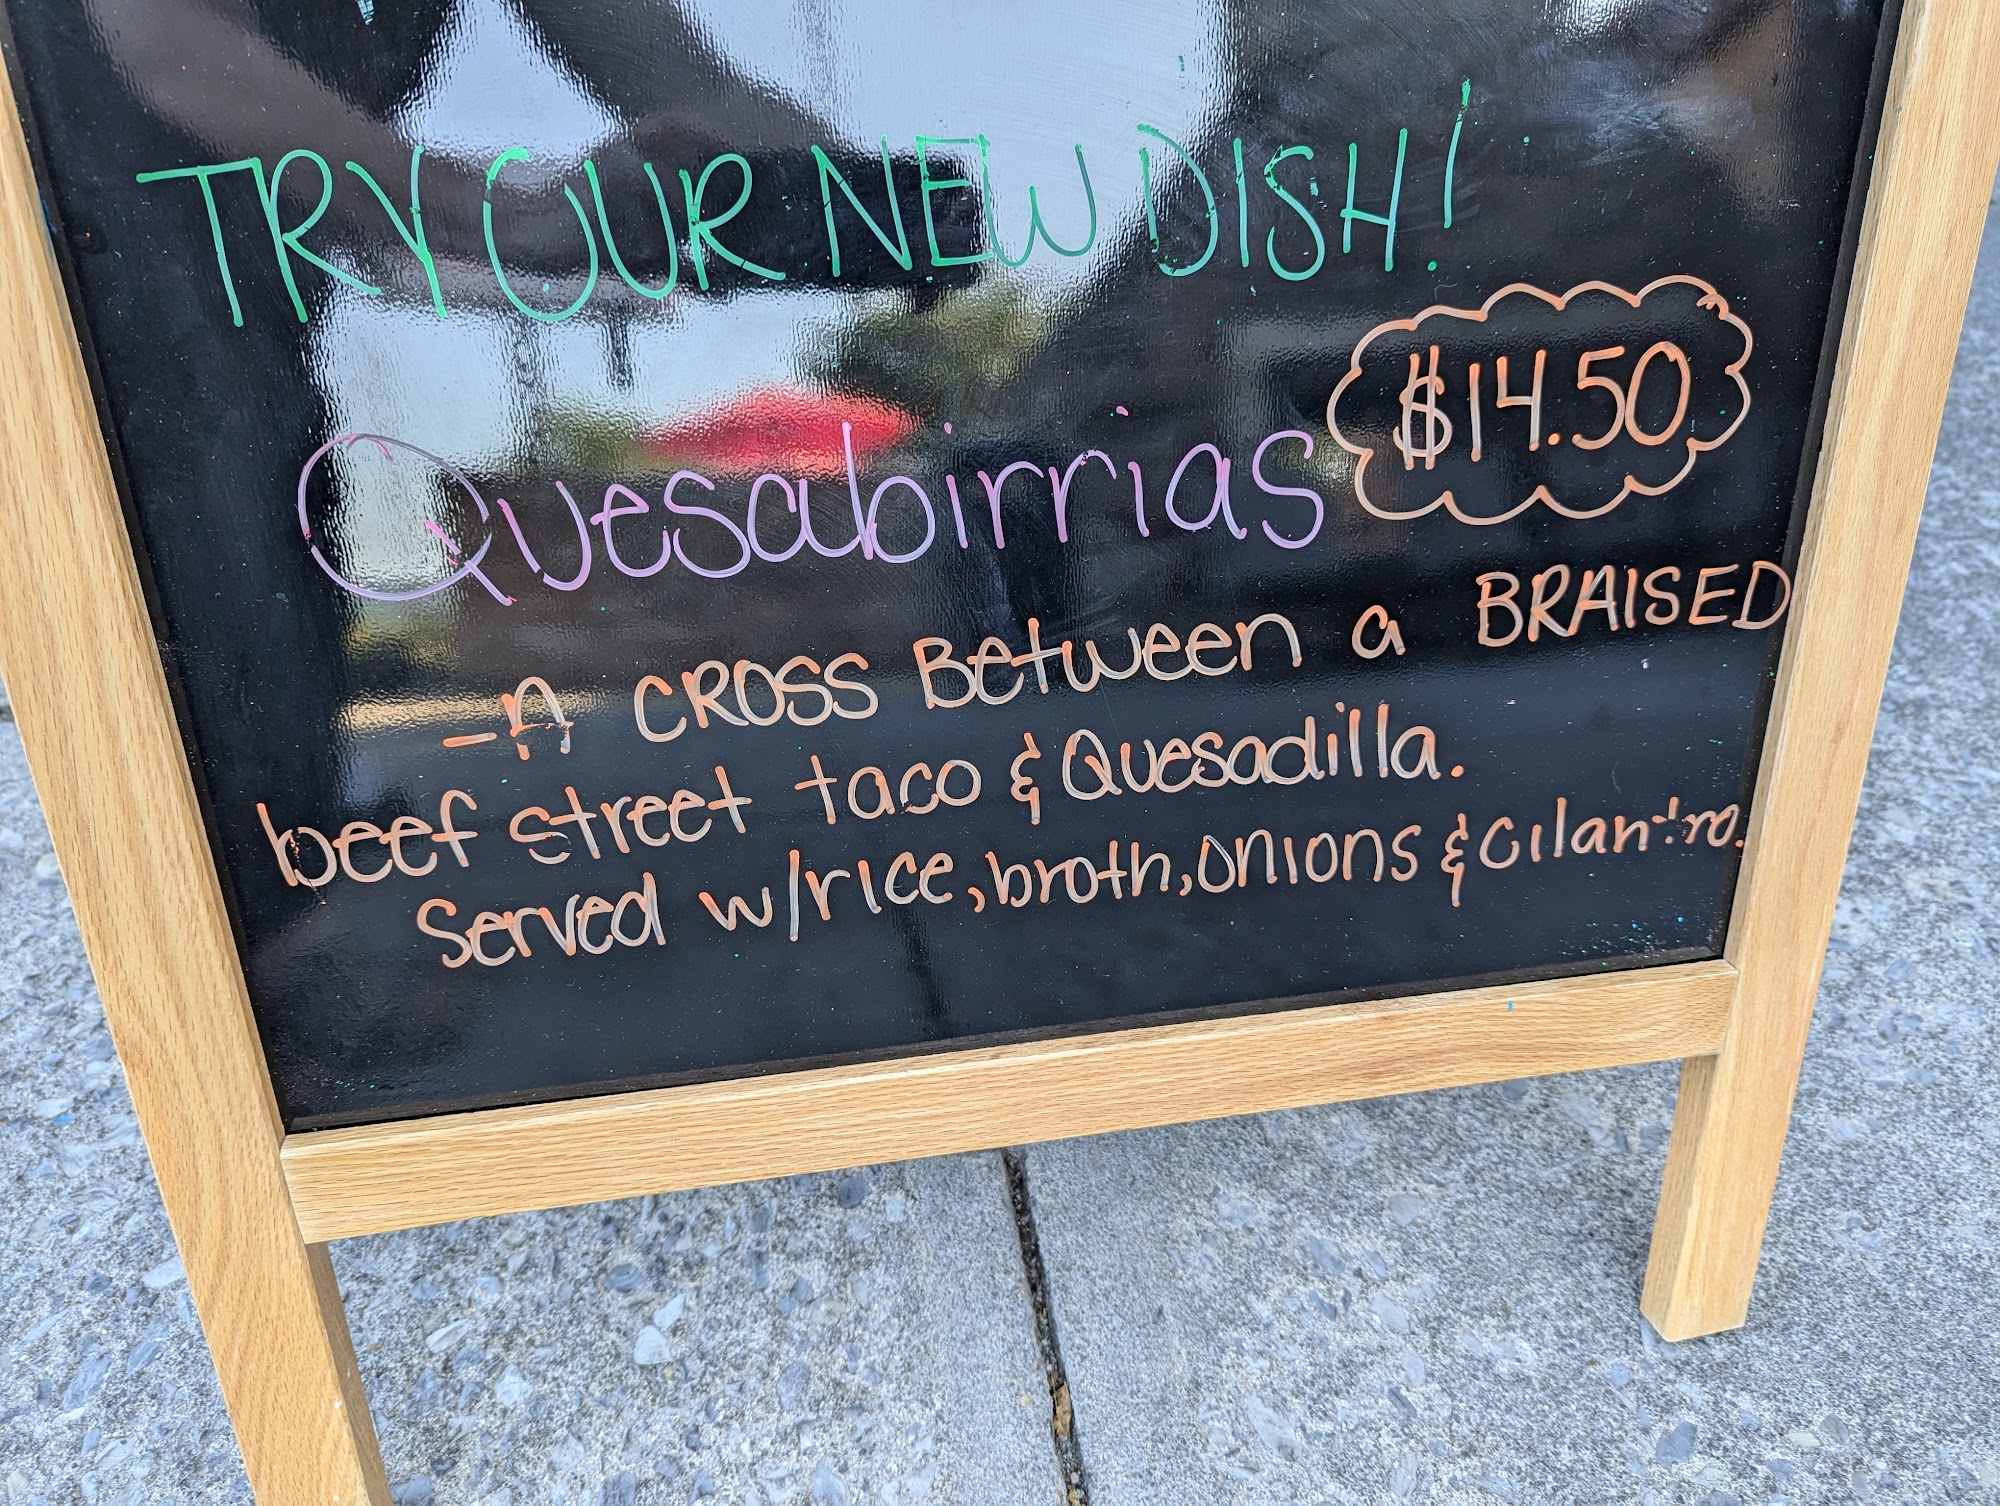 TRY OUR NEW DISH!
$14.50
Quesabirrias
- A CROSS Between a BRAISED
beef street taco & Quesadilla.
Served w/rice, broth, onions & cilantro.